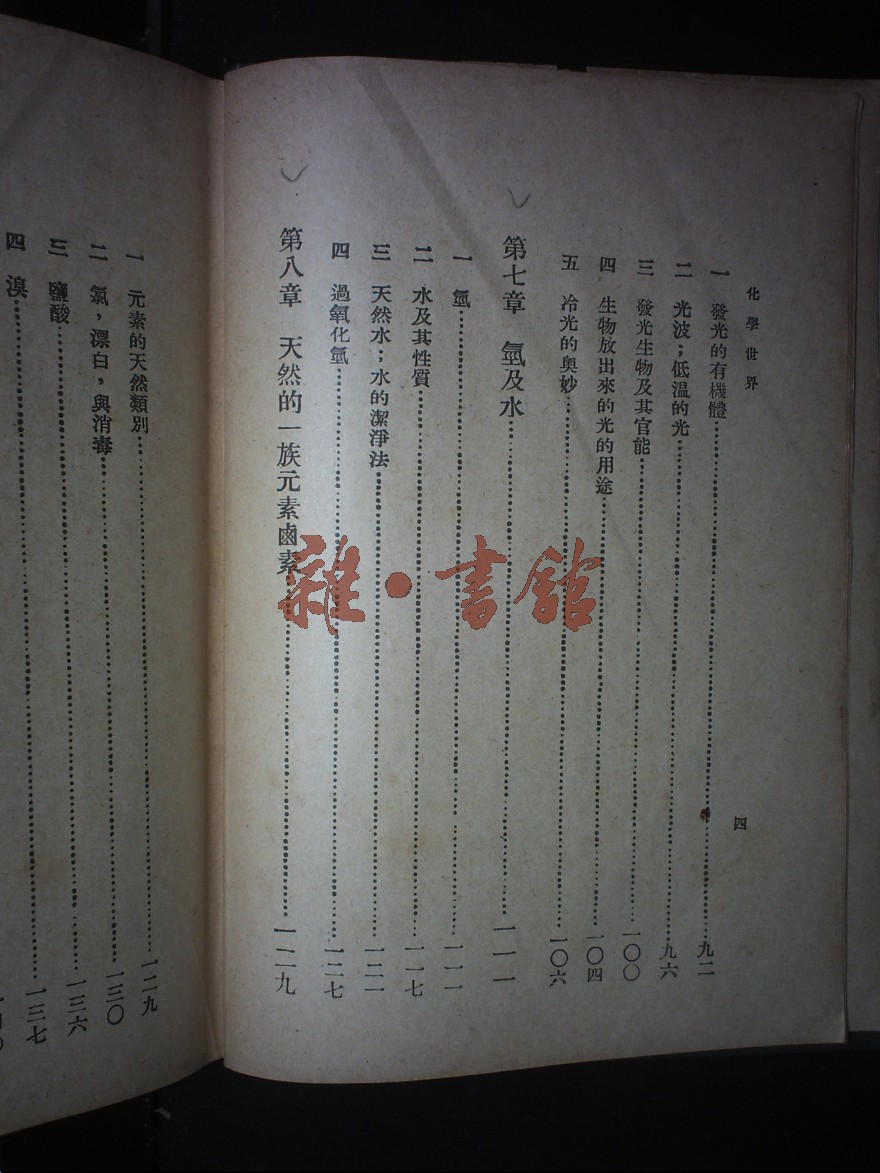 化學世界
四
一 發光的有機體……九二
二 光波；低温的光……九六
三 發光生物及其官能……一〇〇
四 生物放出來的光的用途……一〇四
五 冷光的奥妙……一〇六
第七章 氫及水……一一一
一 氫……一一一
二 水及其性質……一一七
三 天然水；水的潔淨法……一二一
四 過氧化氫……一二七
第八章 天然的一族元素鹵素……一二九
一 元素的天然類別……一二九
二 氯，漂白，與消毒……一三〇
三 鹽酸……一三六
四 溴……一三七
雜·書館